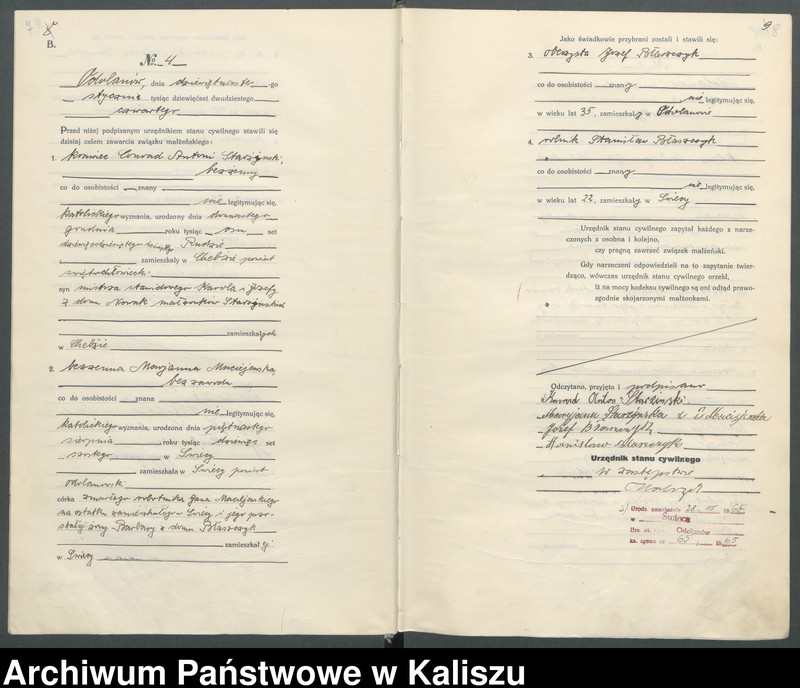 B.
№ 4
Odolanów, dnia dziewiętnaste- go
stycznia tysiąc dziewięćset dwudziestego
czwartego
Przed niżej podpisanym urzędnikiem stanu cywilnego stawili się
dzisiaj celem zawarcia związku małżeńskiego:
1. krawiec Conrad Antoni Starzynski,
bezżenny
co do osobistości znany
nie legitymując się,
katolickiego wyznania, urodzony dnia dwunastego
grudnia roku tysiąc osm set
w Rudzie
zamieszkały w Chebzie powiat
świętochłowicki
syn mistrza Karola i Józefy
z domu Nowak małżonków Starzynskich
zamieszkałych
w Chebzie
2. bezżenna Maryanna Maciejewska,
bez zawodu
co do osobistości znana
nie legitymując się,
katolickiego wyznania, urodzona dnia piętnastego
sierpnia roku tysiąc dziewięć set
szóstego w Świecy
zamieszkała w Świecy powiat
odolanowski
córka zmarłego robotnika Jana Maciejewskiego
na ostatku zamieszkałego w Świecy i jego pozo-
stałej żony Barbary z domu Błaszczyk
zamieszkałej
w Świecy
9
Jako świadkowie przybrani zostali i stawili się:
3. Józef Błaszczyk
co do osobistości znany
nie legitymując się,
w wieku lat 35, zamieszkały w Odolanowie
4. rolnik Stanisław Błaszczyk
co do osobistości znany
nie legitymując się,
w wieku lat 22, zamieszkały w Świecy
Urzędnik stanu cywilnego zapytał każdego z narze-
czonych z osobna i kolejno,
czy pragną zawrzeć związek małżeński.
Gdy narzeczeni odpowiedzieli na to zapytanie twier-
dząco, wówczas urzędnik stanu cywilnego orzekł,
iż na mocy kodeksu cywilnego są oni odtąd prawo-
zgodnie skojarzonymi małżonkami.
Odczytano, przyjęto i podpisano
Konrad Anton Starzinski
Maryjanna Starzynska z d. Maciejewska
Józef Błaszczyk
Stanisław Błaszczyk
Urzędnik stanu cywilnego
w zastępstwie
Odolanów
65
Archiwum Państwowe w Kaliszu